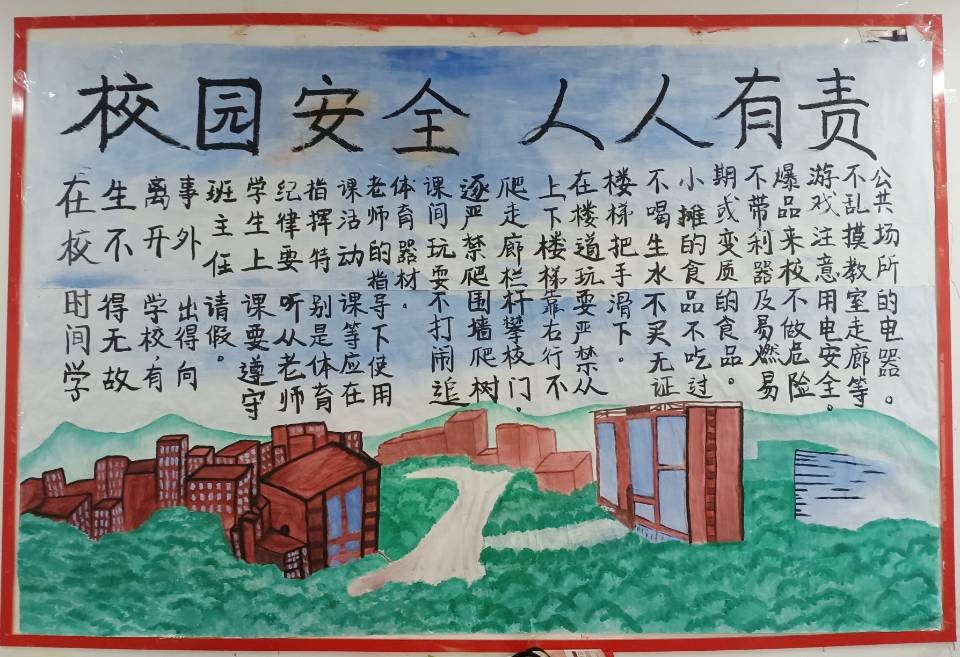 校园安全 人人有责
在校时间学
生不得无故
离开学校,有
事外出得向
班主任请假。
学生上课要遵守
纪律要听从老师
指挥特别是体育
课活动课等应在
老师的指导下使用
体育器材.
课间玩耍不打闹追
逐严禁爬围墙爬树
爬走廊栏杆攀枝门.
上下楼梯靠右行不
在楼道玩耍严禁从
楼梯把手滑下.
不喝生水不买无证
小摊的食品不吃过
期或变质的食品。
不带利器及易燃易
爆品来校不做危险
游戏注意用电安全。
不乱摸教室走廊等
公共场所的电器。